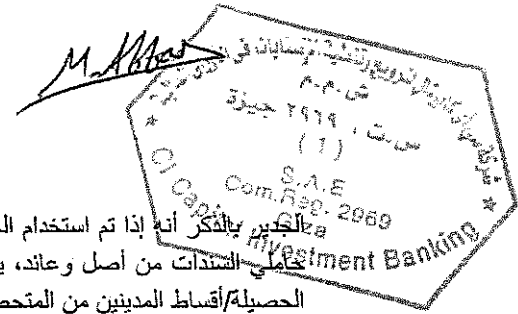 M. Abbas
ش.م.م
س.ت ، ٢٩٦٩ جيزة
(1)
S.A.E
Com.Reg. 2969
Giza
CI Capital Investment Banking
الجدير بالذكر أنه إذا تم استخدام
حاملي السندات من أصل وعائد،
الحصيلة/أقساط المدينين من